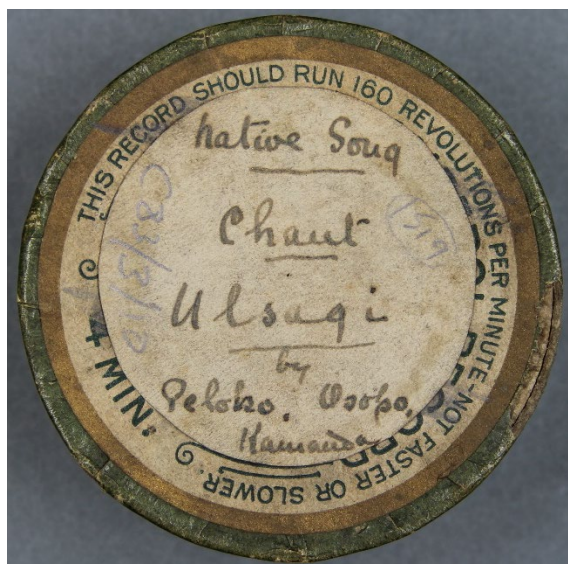 THIS RECORD SHOULD RUN 160 REVOLUTIONS PER MINUTE-NOT FASTER OR SLOWER
native Song
Chant
Ulsagi
by
Peloko, Osopo,
Kamanda
C83/3/10
1519
4 MIN.
RECORD